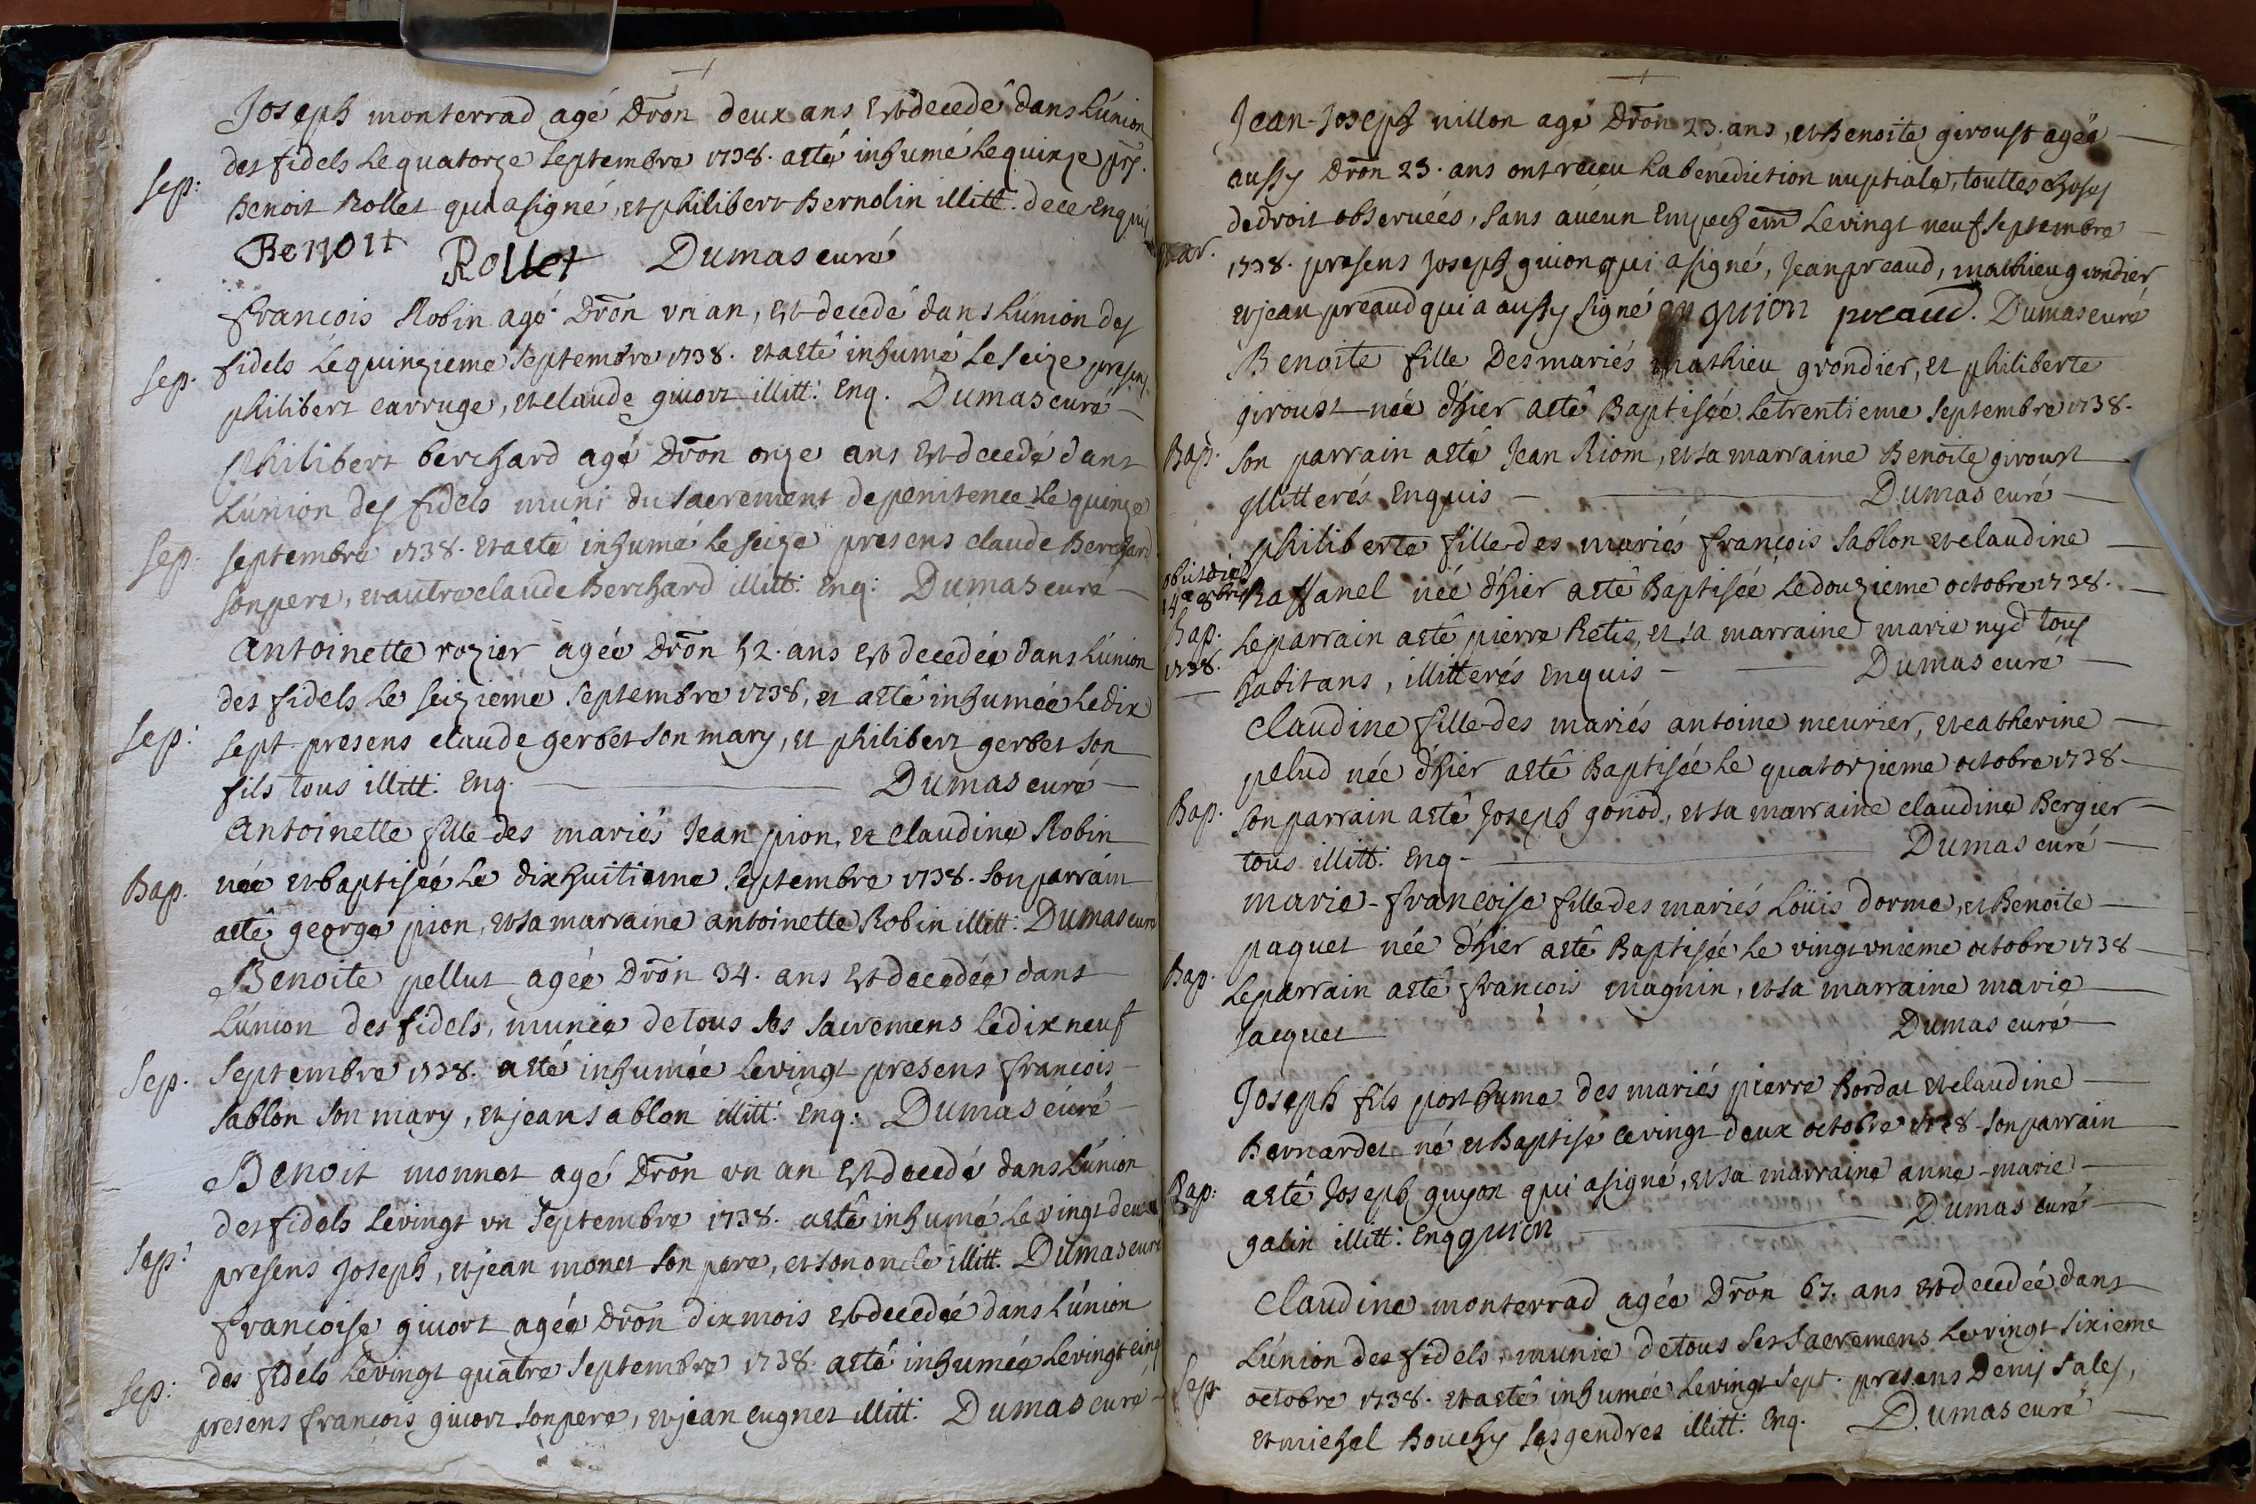 Joseph monterrad agé Dron deux ans Est decedé dans L'union
des fidels Le quatorze Septembre 1738. a eté inhumé Le quinze prs.
Sep: Benoit Rollet qui a signé, et philibert Bernolin illitt. de ce Enquis
Benoit Rollet Dumas curé
francois Robin agé Dron vn an, Est decedé dans L'union des
Sep. fidels Le quinzieme Septembre 1738. et a eté inhumé Le Seize presens
philibert carruge, et claude givort illitt: Enq. Dumas curé
Philibert berchard agé Dron onze ans Est decedé dans
L'union des fidels muni du Sacrement de penitence Le quinze
Sep. Septembre 1738. et a eté inhumé Le Seize presens claude Berchard
son pere, et autre claude Berchard illitt: Enq: Dumas curé
Antoinette rozier agée Dron 52. ans Est decedée dans L'union
des fidels Le Seizieme Septembre 1738, et a eté inhumée Le dix
Sep: Sept presens claude gerbet son mary, et philibert gerbet son
fils tous illitt: Enq. Dumas curé
Antoinette fille des mariés Jean pion, et Claudine Robin
Bap. née et baptisée Le dixhuitieme Septembre 1738. son parrain
a eté george pion, et sa marraine antoinette Robin illitt: Dumas curé
Benoite pellut agée Dron 34. ans Est decedée dans
L'union des fidels, munie de tous Ses Sacremens Le dix neuf
Sep. Septembre 1738. a eté inhumée Le vingt presens francois
Sablon son mary, et jean Sablon illitt: Enq: Dumas curé
Benoit monnet agé Dron vn an Est decedé dans L'union
des fidels Le vingt vn Septembre 1738. a eté inhumé Le vingt deux
Sep: presens Joseph, et jean monet son pere, et son oncle illitt. Dumas curé
francoise givort agée Dron dix mois Est decedée dans L'union
des fidels Le vingt quatre Septembre 1738. a eté inhumée Le vingt cinq
Sep: presens francois givort son pere, et jean cugnet illitt: Dumas curé
Jean-Joseph nillon agé Dron 23. ans, et Benoite giroust agée
aussy Dron 23. ans ont receu La benediction nuptiale, touttes choses
de droit observées, sans aucun Empechem Le vingt neuf Septembre
mar. 1738. presens Joseph guion qui a signé, Jean preaud, mathieu grondier
et jean preaud qui a aussy signé guion preaud. Dumas curé
Benoite fille Des mariés mathieu grondier, et philiberte
giroust née d'hier a eté Baptisée Le trentieme Septembre 1738.
Bap. Son parrain a eté Jean Riom, et sa marraine Benoite giroust
illitterés Enquis Dumas curé
philiberte fille des mariés françois Sablon et claudine
Raffanel née d'hier a eté Baptisée Le douzieme octobre 1738.
Bap. Le parrain a eté pierre Retis, et sa marraine marie nyd tous
1738. habitans, illitterés Enquis Dumas curé
Claudine fille des mariés antoine meurier, et catherine
pelud née d'hier a eté Baptisée Le quatorzieme octobre 1738.
Bap. Son parrain a eté Joseph gonod, et sa marraine claudine Bergier
tous illitt: Enq. Dumas curé
marie-francoise fille des mariés Loüis dorme, et Benoite
paquet née d'hier a eté Baptisée Le vingt vnieme octobre 1738
Bap. Le parrain a eté francois magnin, et sa marraine marie
Jacquet Dumas curé
Joseph fils posthume des mariés pierre hordat et claudine
Bernardet né et Baptisé Le vingt deux octobre 1738. son parrain
Bap: a eté Joseph guyon qui a signé, et sa marraine anne-marie
galin illitt: Enq guion Dumas curé
Claudine monterrad agée Dron 67. ans Est decedée dans
L'union des fidels, munie de tous Ses Sacremens Le vingt Sixieme
Sep. octobre 1738. et a eté inhumée Le vingt Sept. presens Denis Sales,
et michel Bouchy Ses gendres illitt: Enq. Dumas curé